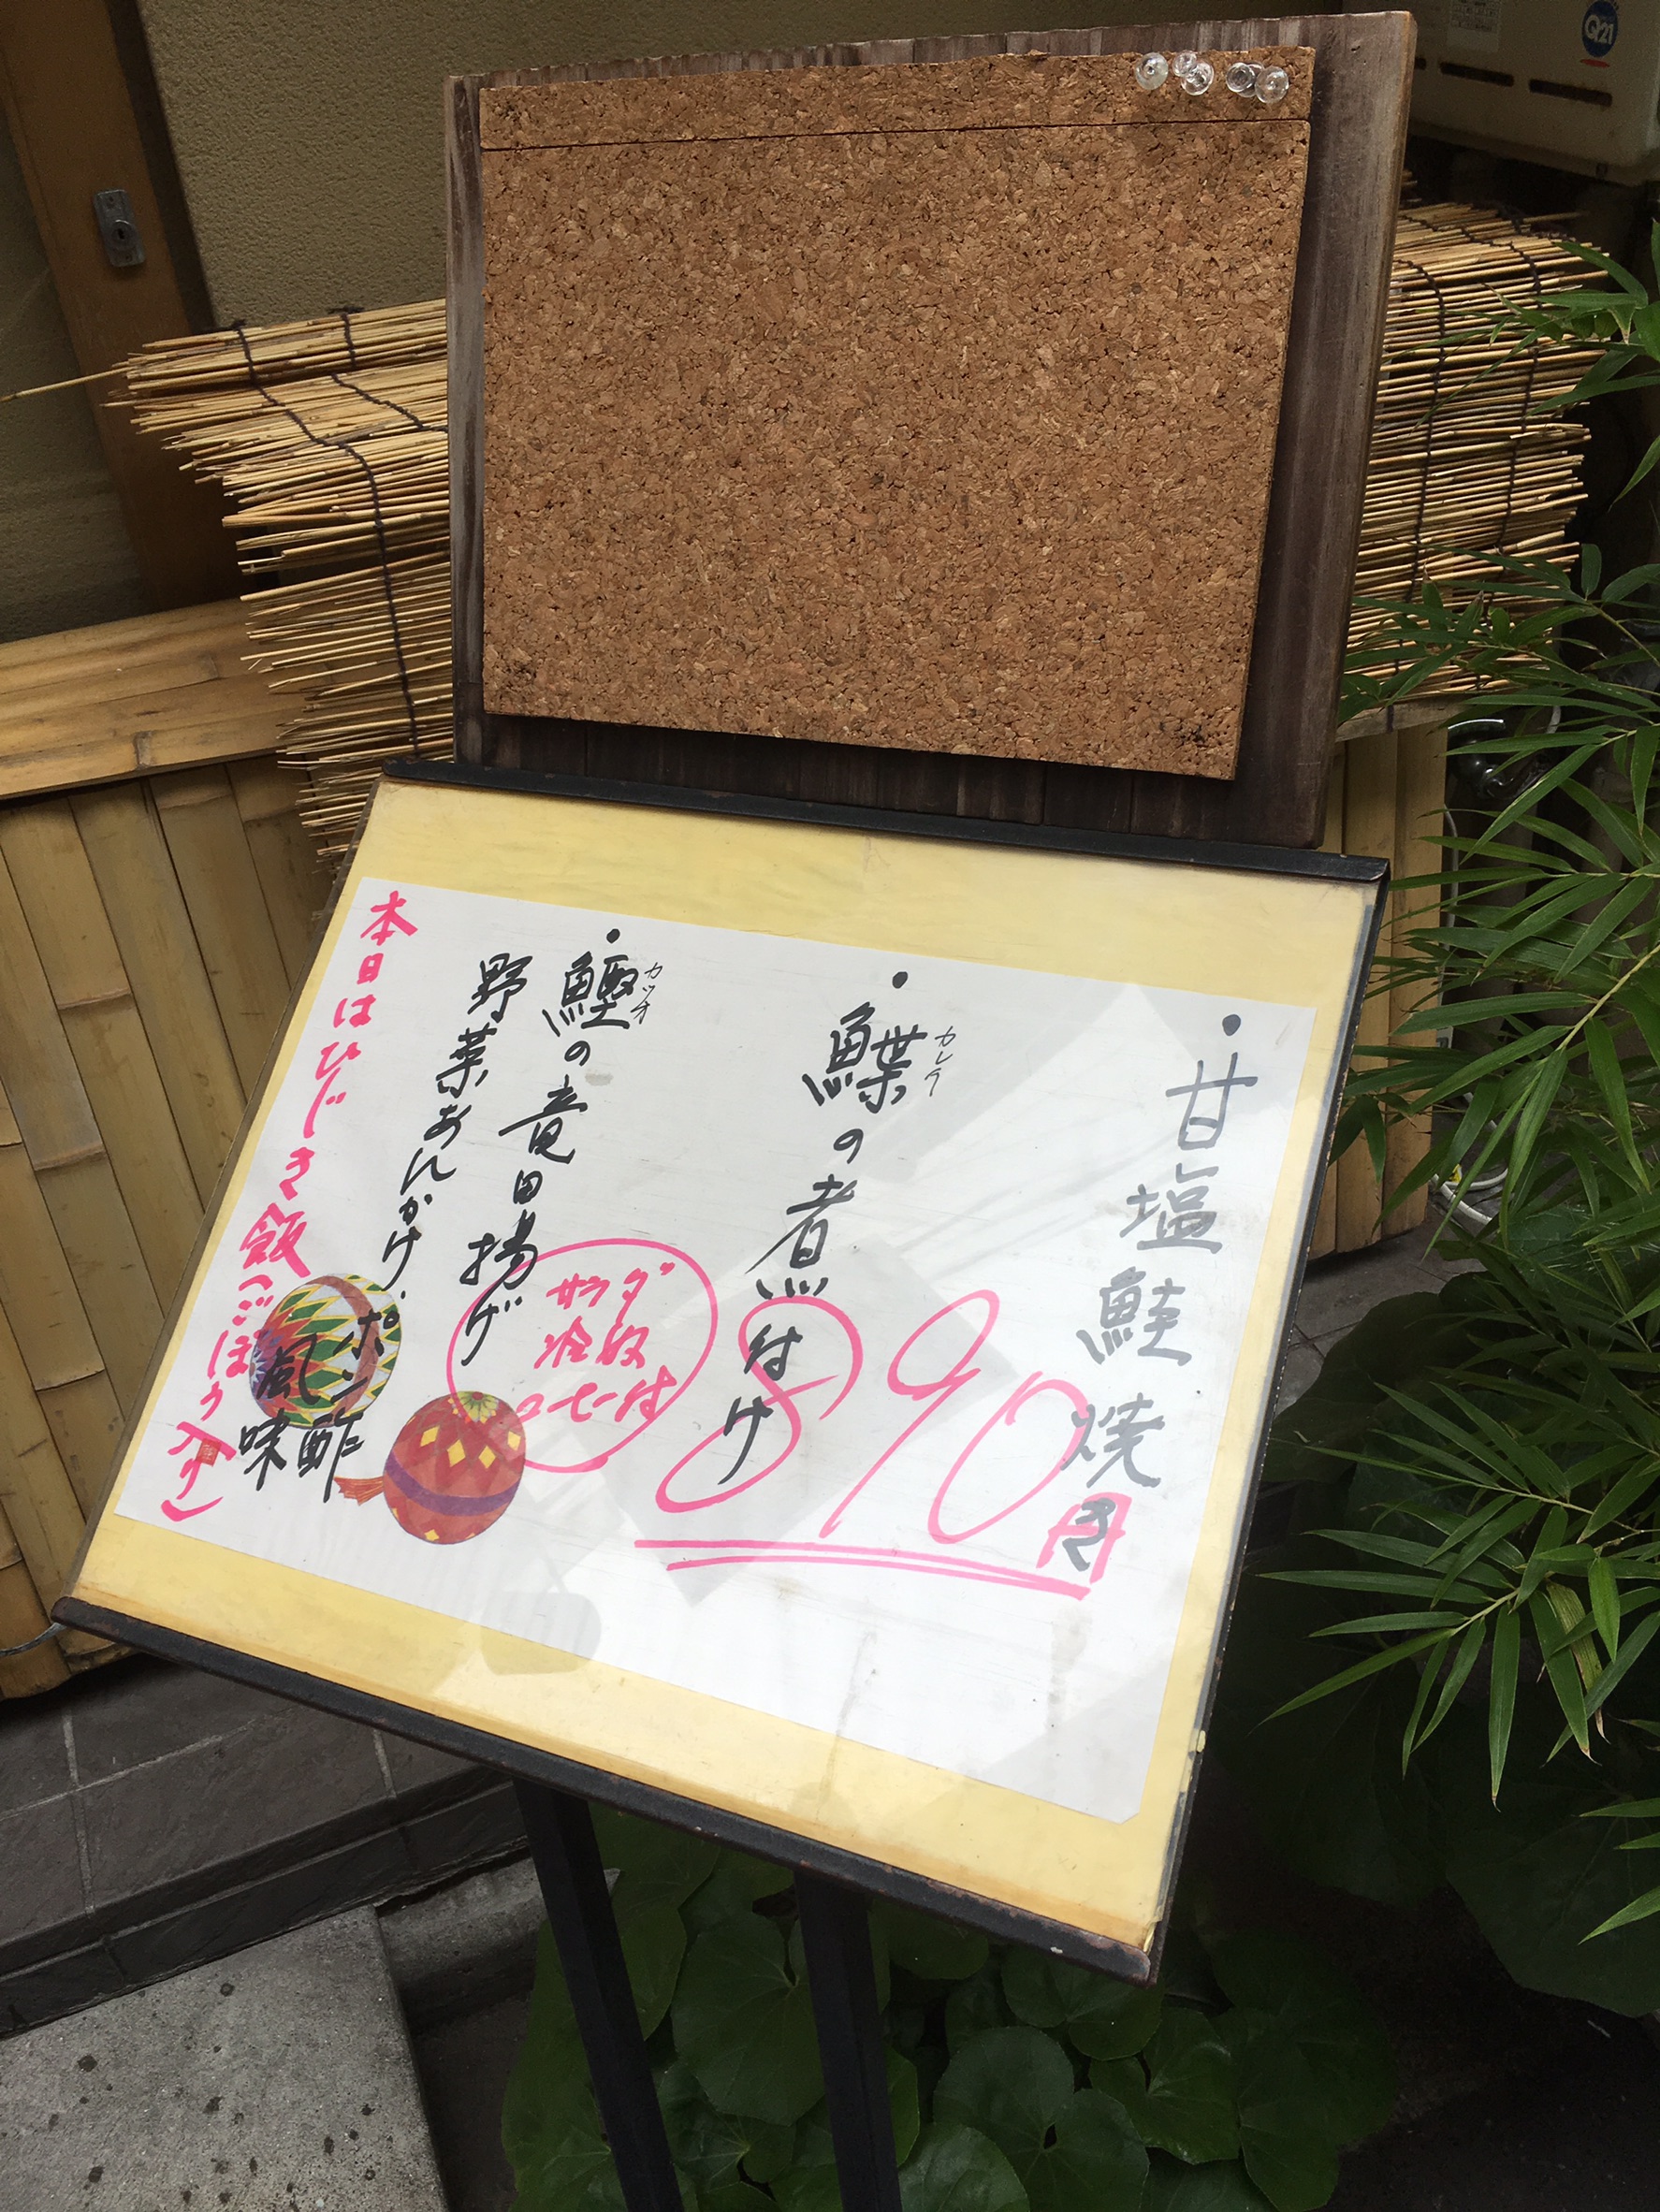 ・甘塩鮭焼き
・鰈の煮付け
カレイ
890円
・鰹の竜田揚げ
カツオ
野菜あんかけ、ポン酢
風味
サラダ
冷奴
コーヒー付
本日はひじき飯(ごぼう入り)
Q21